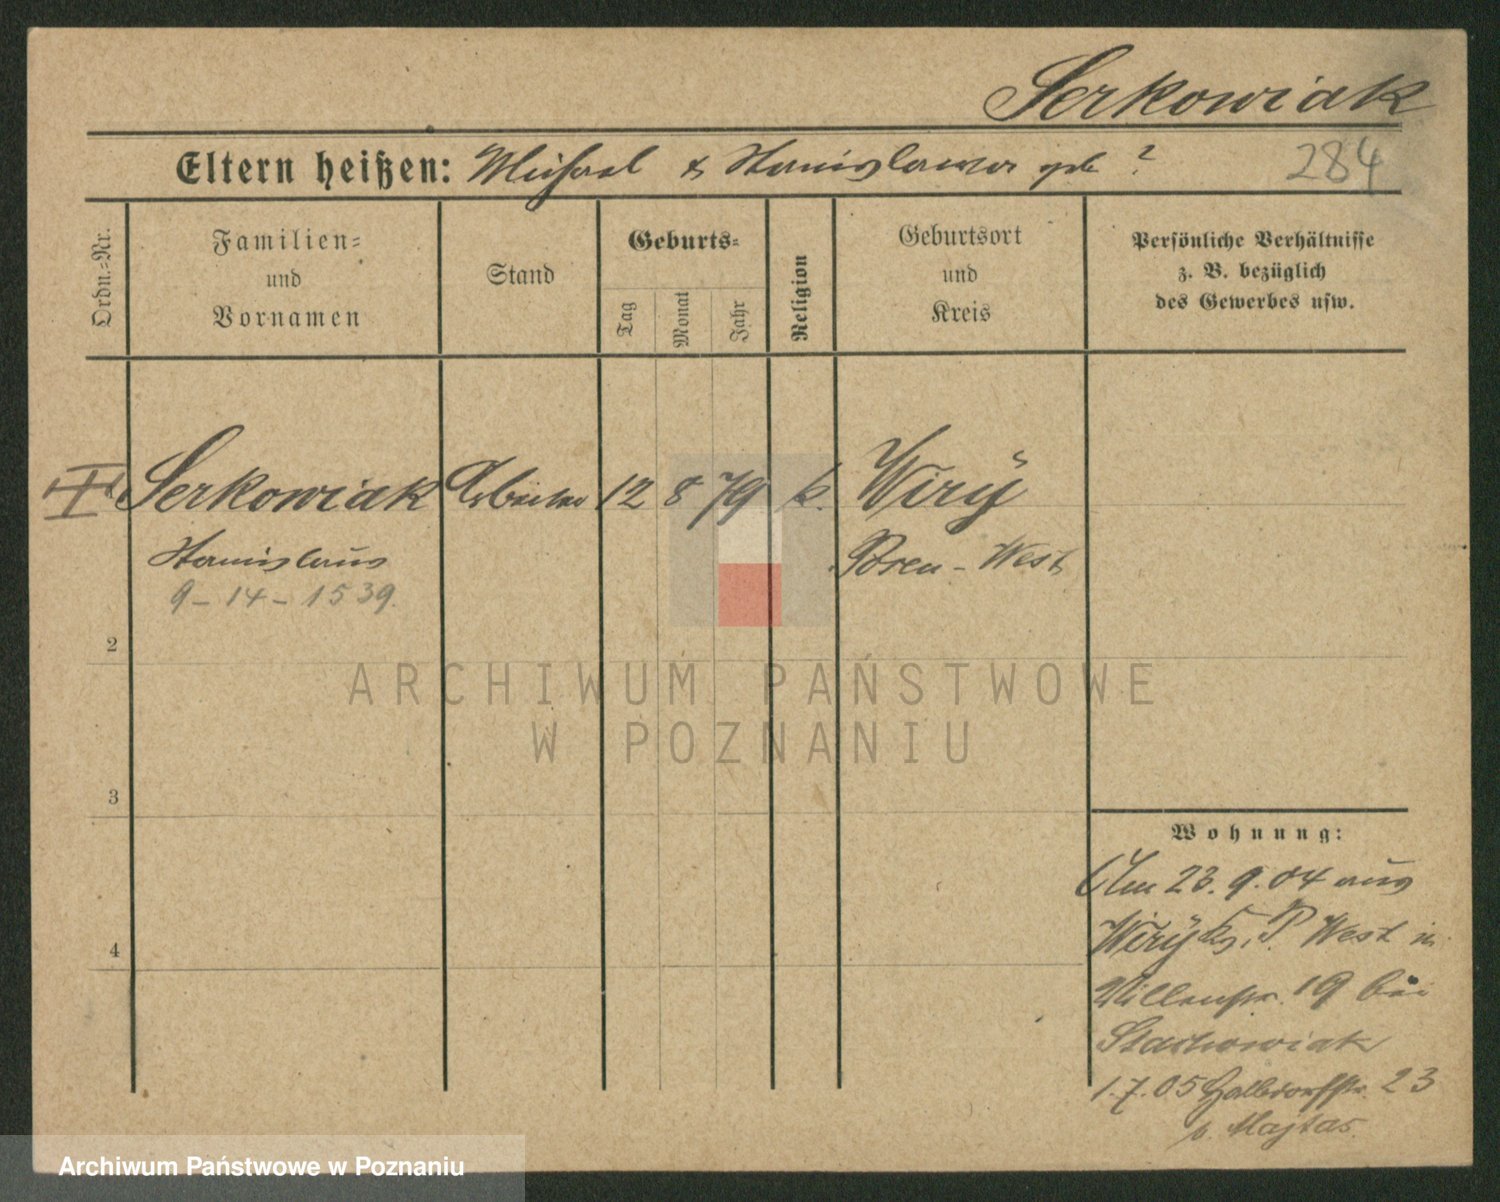 Serkowiak
Eltern heißen: Michael & Stanislawa geb ?
284
Ordn.-Nr.
Familien-
und
Vornamen
Stand
Geburts-
Tag
Monat
Jahr
Religion
Geburtsort
und
Kreis
Persönliche Verhältnisse
z. B. bezüglich
des Gewerbes usw.
Serkowiak Arbeiter 12 8 79 k. Wirÿ
Stanislaus Posen - West
9 - 14 - 1539.
2
3
4
ARCHIWUM PAŃSTWOWE
W POZNANIU
Wohnung:
Am 23.9.04 aus
Wirÿ Kr. P. West in
Villenstr. 19 bei
Stachowiak
1.7.05 Halbdorfstr. 23
b. Majtas.
Archiwum Państwowe w Poznaniu